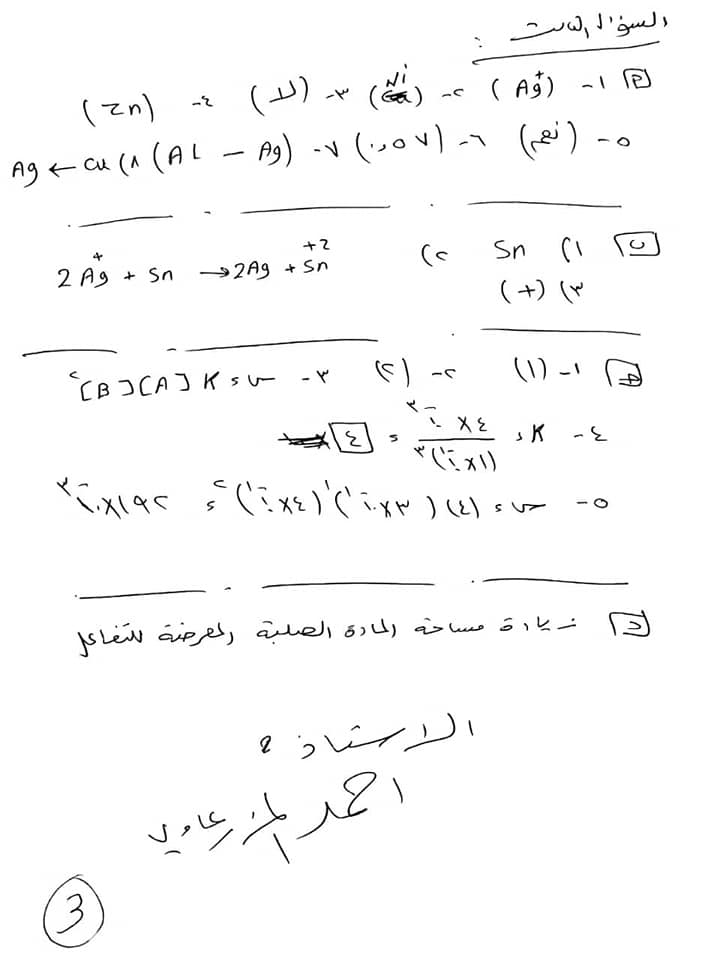 السؤال الثالث :
أ ١- (Ag⁺) ٢- (Ni) ٣- (لا) ٤- (Zn)
٥- (نعم) ٦- (٠,٥٧) ٧- (Al – Ag) ٨) Ag ← Cu
ب ١) Sn ٢) 2Ag⁺ + Sn → 2Ag + Sn⁺²
٣) (+)
جـ ١- (١) ٢- (٢) ٣- س = K [A] [B]²
٤- K = ٤×١٠⁻³ / (١×١٠⁻¹)³ = ٤
٥- س = (٤) (٣×١٠⁻¹)¹ (٤×١٠⁻¹)² = ١٩٢×١٠⁻³
د زيادة مساحة المادة الصلبة المعرضة للتفاعل
الاستاذ :
احمد
3